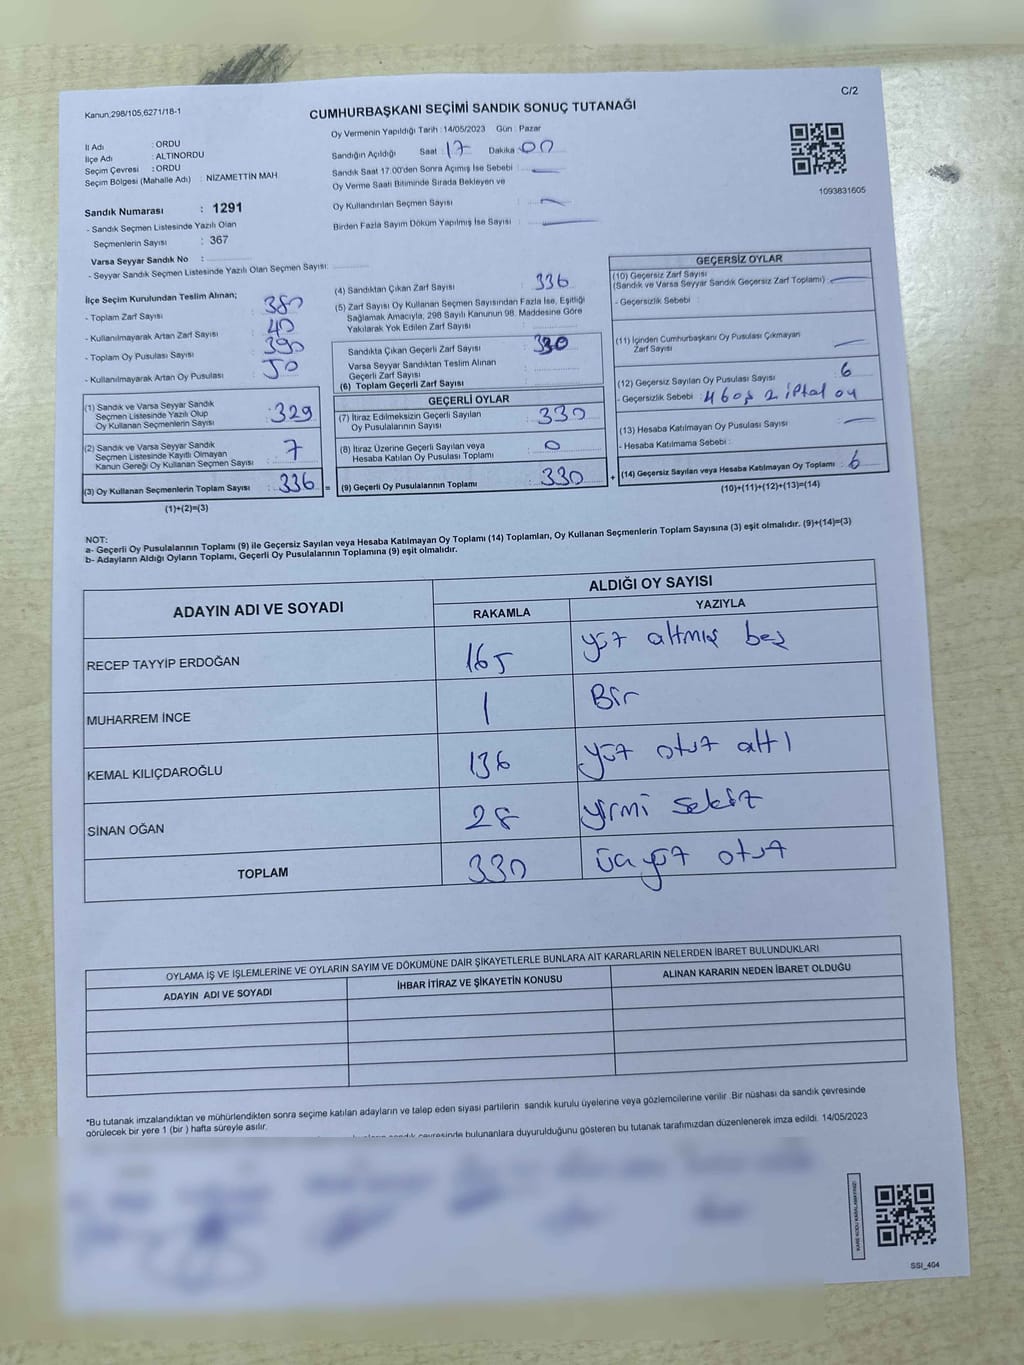 C/2
Kanun,298/105,6271/18-1
CUMHURBAŞKANI SEÇİMİ SANDIK SONUÇ TUTANAĞI
İl Adı : ORDU
İlçe Adı : ALTINORDU
Seçim Çevresi : ORDU
Seçim Bölgesi (Mahalle Adı) : NİZAMETTİN MAH
Sandık Numarası : 1291
- Sandık Seçmen Listesinde Yazılı Olan
Seçmenlerin Sayısı : 367
Varsa Seyyar Sandık No :
- Seyyar Sandık Seçmen Listesinde Yazılı Olan Seçmen Sayısı:
Oy Vermenin Yapıldığı Tarih : 14/05/2023 Gün : Pazar
Sandığın Açıldığı Saat : 17 Dakika : 00
Sandık Saat 17.00'den Sonra Açımış İse Sebebi : —
Oy Verme Saati Bitiminde Sırada Bekleyen ve
Oy Kullandırılan Seçmen Sayısı : —
Birden Fazla Sayım Döküm Yapılmış İse Sayısı : —
1093831605
İlçe Seçim Kurulundan Teslim Alınan;
- Toplam Zarf Sayısı : 380
- Kullanılmayarak Artan Zarf Sayısı : 40
- Toplam Oy Pusulası Sayısı : 390
- Kullanılmayarak Artan Oy Pusulası : 50
(1) Sandık ve Varsa Seyyar Sandık
Seçmen Listesinde Yazılı Olup
Oy Kullanan Seçmenlerin Sayısı : 329
(2) Sandık ve Varsa Seyyar Sandık
Seçmen Listesinde Kayıtlı Olmayan
Kanun Gereği Oy Kullanan Seçmen Sayısı : 7
(3) Oy Kullanan Seçmenlerin Toplam Sayısı : 336 =
(1)+(2)=(3)
(4) Sandıktan Çıkan Zarf Sayısı : 336
(5) Zarf Sayısı Oy Kullanan Seçmen Sayısından Fazla İse, Eşitliği
Sağlamak Amacıyla, 298 Sayılı Kanunun 98. Maddesine Göre
Yakılarak Yok Edilen Zarf Sayısı :
Sandıkta Çıkan Geçerli Zarf Sayısı : 330
Varsa Seyyar Sandıktan Teslim Alınan
Geçerli Zarf Sayısı :
(6) Toplam Geçerli Zarf Sayısı :
GEÇERLİ OYLAR
(7) İtiraz Edilmeksizin Geçerli Sayılan
Oy Pusulalarının Sayısı : 330
(8) İtiraz Üzerine Geçerli Sayılan veya
Hesaba Katılan Oy Pusulası Toplamı : 0
(9) Geçerli Oy Pusulalarının Toplamı : 330 +
GEÇERSİZ OYLAR
(10) Geçersiz Zarf Sayısı
(Sandık ve Varsa Seyyar Sandık Geçersiz Zarf Toplamı) : —
- Geçersizlik Sebebi :
(11) İçinden Cumhurbaşkanı Oy Pusulası Çıkmayan
Zarf Sayısı : —
(12) Geçersiz Sayılan Oy Pusulası Sayısı : 6
- Geçersizlik Sebebi : 4 boş 2 iptal oy
(13) Hesaba Katılmayan Oy Pusulası Sayısı : —
- Hesaba Katılmama Sebebi :
(14) Geçersiz Sayılan veya Hesaba Katılmayan Oy Toplamı : 6
(10)+(11)+(12)+(13)=(14)
NOT:
a- Geçerli Oy Pusulalarının Toplamı (9) ile Geçersiz Sayılan veya Hesaba Katılmayan Oy Toplamı (14) Toplamları, Oy Kullanan Seçmenlerin Toplam Sayısına (3) eşit olmalıdır. (9)+(14)=(3)
b- Adayların Aldığı Oyların Toplamı, Geçerli Oy Pusulalarının Toplamına (9) eşit olmalıdır.
ADAYIN ADI VE SOYADI ALDIĞI OY SAYISI
RAKAMLA YAZIYLA
RECEP TAYYİP ERDOĞAN 165 yüz altmış beş
MUHARREM İNCE 1 Bir
KEMAL KILIÇDAROĞLU 136 yüz otuz altı
SİNAN OĞAN 28 yirmi sekiz
TOPLAM 330 üçyüz otuz
OYLAMA İŞ VE İŞLEMLERİNE VE OYLARIN SAYIM VE DÖKÜMÜNE DAİR ŞİKAYETLERLE BUNLARA AİT KARARLARIN NELERDEN İBARET BULUNDUKLARI
ADAYIN ADI VE SOYADI İHBAR İTİRAZ VE ŞİKAYETİN KONUSU ALINAN KARARIN NEDEN İBARET OLDUĞU
*Bu tutanak imzalandıktan ve mühürlendikten sonra seçime katılan adayların ve talep eden siyasi partilerin sandık kurulu üyelerine veya gözlemcilerine verilir .Bir nüshası da sandık çevresinde
görülecek bir yere 1 (bir ) hafta süreyle asılır.
sandık çevresinde bulunanlara duyurulduğunu gösteren bu tutanak tarafımızdan düzenlenerek imza edildi. 14/05/2023
KARE KODU KARALAMAYINIZ!
SSI_404